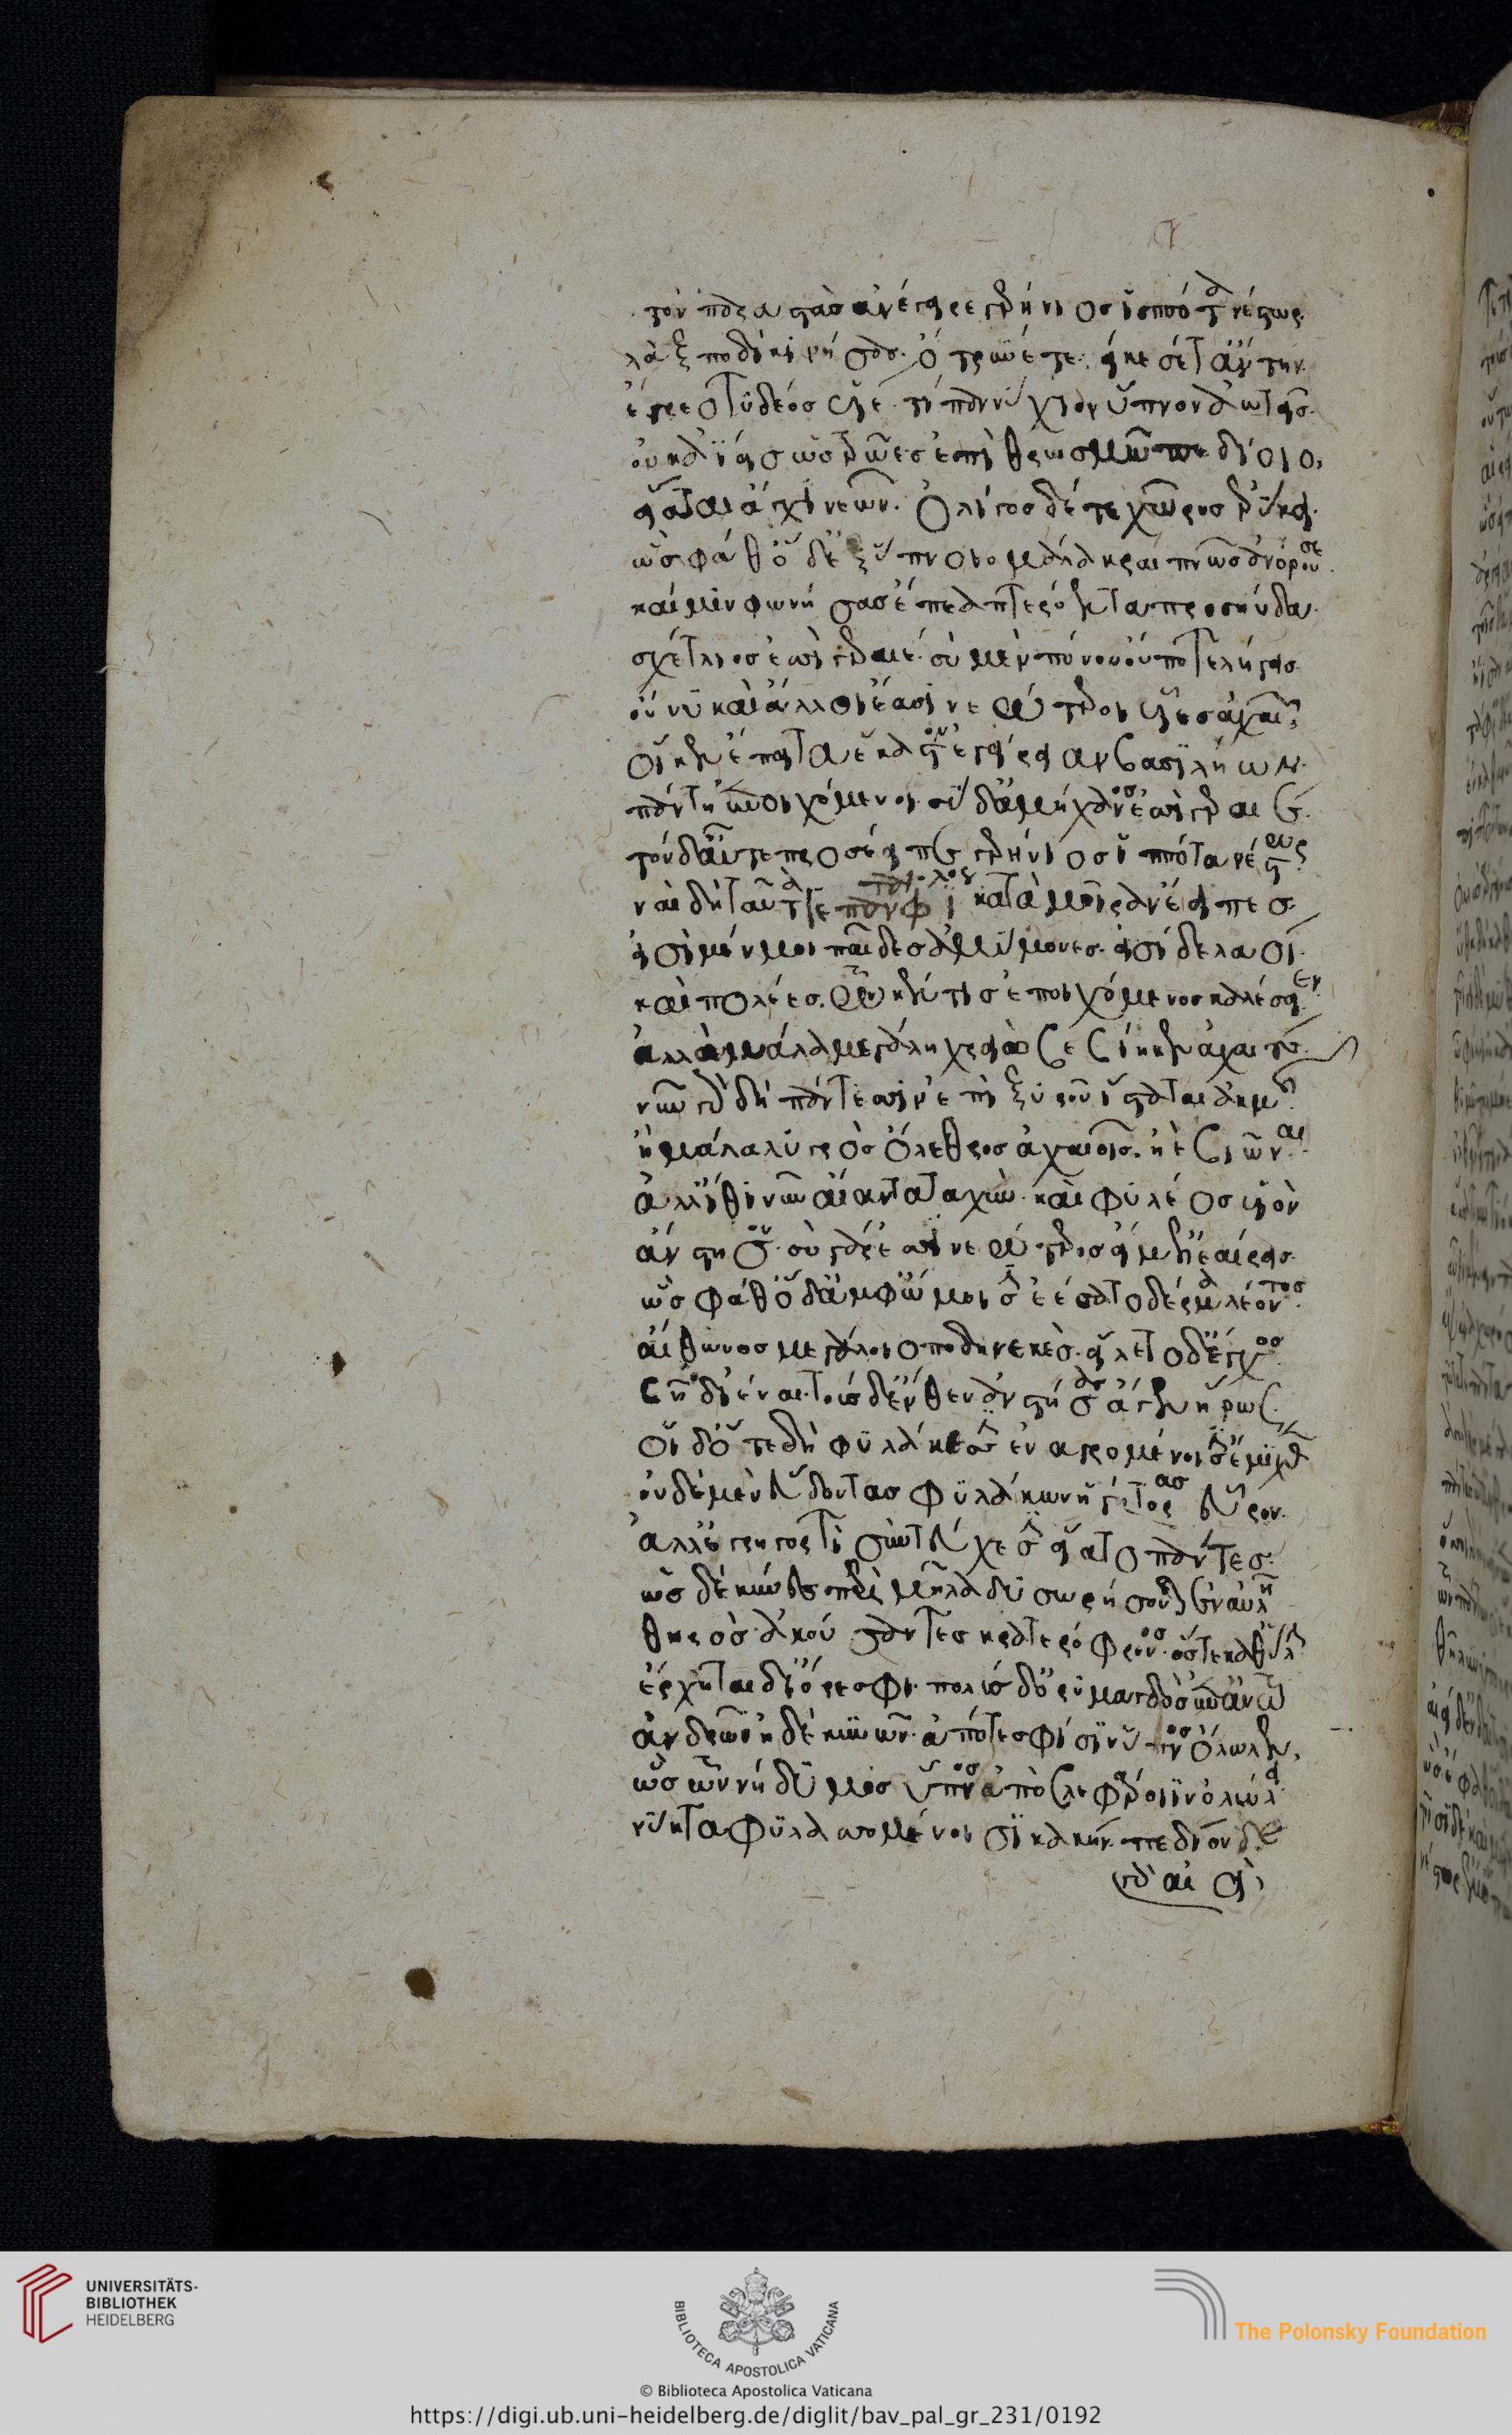 τὸν παρστὰς ἀνέγειρε γερήνιος ἱππότα νέστωρ
λὰξ ποδὶ κινήσας. ὄτρυνέ τε. νείκεσέ τ' ἄντην.
ἔγρεο τυδέος υἱέ. τί πάννυχον ὕπνον ἀωτεῖς.
οὐκ ἀΐεις ὡς τρῶες ἐπὶ θρωσμῶ πεδίοιο.
εἵαται ἄγχι νεῶν. ὀλίγος δέ τε χῶρος ἐρύκει.
ὣς φάθ' ὁ δ' ἐξ ὕπνοιο μάλα κραιπνῶς ἀνόρουσε.
καί μιν φωνήσας ἔπεα πτερόεντα προσηύδα.
σχέτλιός ἐσσι γεραιέ. σὺ μὲν πόνου οὔποτε λήγεις.
οὔ νυ καὶ ἄλλοι ἔασι νεώτεροι υἷες ἀχαιῶν
οἵ κεν ἔπειτα ἕκαστον ἐγείρειαν βασιλήων.
πάντη ἐποιχόμενοι. σὺ δ' ἀμήχανός ἐσσι γεραιέ.
τὸν δ' αὖτε προσέειπε γερήνιος ἱππότα νέστωρ
ναὶ δὴ ταῦτά γε πάντα φίλος κατὰ μοῖραν ἔειπες.
εἰσὶ μέν μοι παῖδες ἀμύμονες. εἰσὶ δὲ λαοὶ.
καὶ πολέες. τῶν κέν τις ἐποιχόμενος καλέσειεν.
ἀλλὰ μάλα μεγάλη χρειὼ βεβίηκεν ἀχαιούς.
νῦν γὰρ δὴ πάντεσσιν ἐπὶ ξυροῦ ἵσταται ἀκμῆς
ἢ μάλα λυγρὸς ὄλεθρος ἀχαιοῖς. ἠὲ βιῶναι.
ἀλλ' ἴθι νῦν αἴαντα ταχὺν. καὶ φυλέος υἱὸν
ἄνστησον. σὺ γάρ ἐσσι νεώτερος εἴ μ' ἐλεαίρεις.
ὣς φάθ' ὁ δ' ἀμφ' ὤμοισιν ἑέσατο δέρμα λέοντος.
αἴθωνος μεγάλοιο ποδηνεκὲς. εἵλετο δ' ἔγχος
βῆ δ' ἰέναι. τοὺς δ' ἔνθεν ἀνστήσας ἄγεν ἥρως.
οἱ δ' ὅτε δὴ φυλάκεσσιν ἐν ἀγρομένοισιν ἔμιχθεν
οὐδὲ μὲν εὕδοντας φυλάκων ἡγήτορας εὗρον.
ἀλλ' ἐγρηγορτὶ σὺν τεύχεσιν εἵατο πάντες.
ὡς δὲ κύνες περὶ μῆλα δυσωρήσονται ἐν αὐλῆ
θηρὸς ἀκούσαντες κρατερόφρονος. ὅστε καθ' ὕλην
ἔρχηται δι' ὄρεσφι. πολὺς δ' ὀρυμαγδὸς ἐπ' αὐτῶ
ἀνδρῶν ἠδὲ κυνῶν. ἀπό τέ σφισιν ὕπνος ὄλωλεν.
ὣς τῶν νήδυμος ὕπνος ἀπὸ βλεφάροιϊν ὀλώλει
νύκτα φυλασσομένοισι κακήν. πεδίονδε
γὰρ αἰεὶ